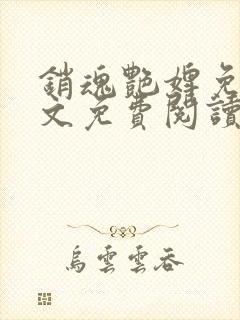 銷魂艷婢免
文免費閱讀
烏雲雲吞